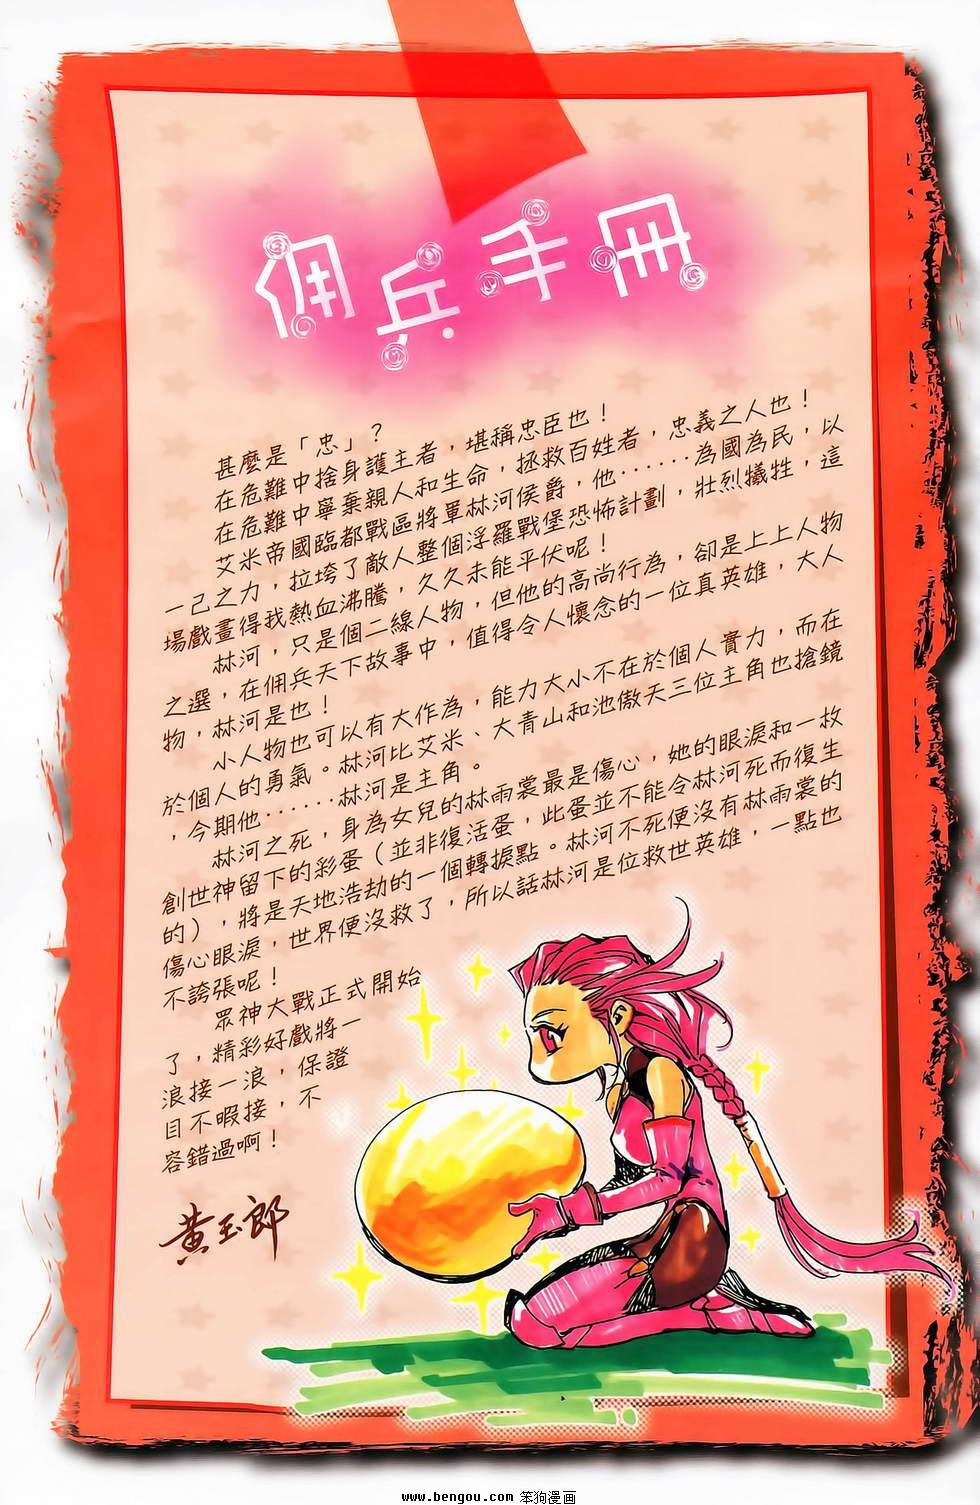 佣兵手冊
甚麼是「忠」？
在危難中捨身護主者，堪稱忠臣也！
在危難中寧棄親人和生命，拯救百姓者，忠義之人也！
艾米帝國臨都戰區將軍林河侯爵，他······為國為民，以
一己之力，拉垮了敵人整個浮羅戰堡恐怖計劃，壯烈犧牲，這
場戲畫得我熱血沸騰，久久未能平伏呢！
林河，只是個二線人物，但他的高尚行為，卻是上上人物
之選，在佣兵天下故事中，值得令人懷念的一位真英雄，大人
物，林河是也！
小人物也可以有大作為，能力大小不在於個人實力，而在
於個人的勇氣。林河比艾米、大青山和池傲天三位主角也搶鏡
，今期他······林河是主角。
林河之死，身為女兒的林雨裳最是傷心，她的眼淚和一枚
創世神留下的彩蛋（並非復活蛋，此蛋並不能令林河死而復生
的），將是天地浩劫的一個轉捩點。林河不死便沒有林雨裳的
傷心眼淚，世界便沒救了，所以話林河是位救世英雄，一點也
不誇張呢！
眾神大戰正式開始
了，精彩好戲將一
浪接一浪，保證
目不暇接，不
容錯過啊！
黃玉郎
www.bengou.com 笨狗漫画